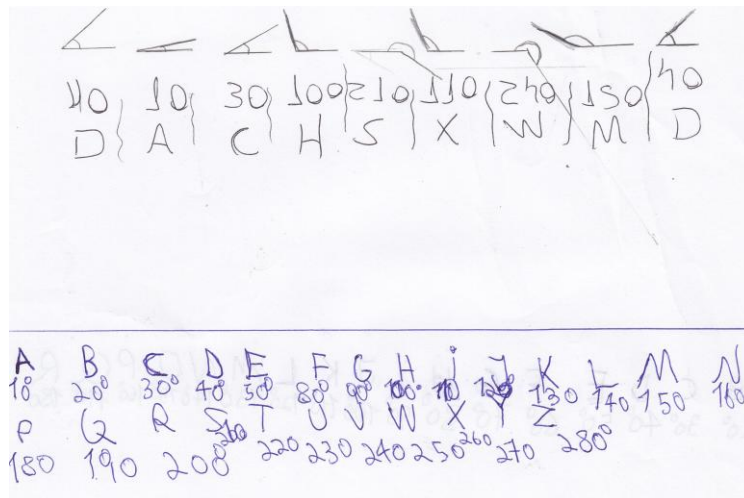 40 10 30 100 210 110 240 150 40
D A C H S X W M D
A B C D E F G H i J K L M N
10 20° 30° 40° 50° 80° 90° 100° 110 120° 130 140 150 160
P Q R S T U V W X Y Z
180 190 200° 220 230 240 250 260 270 280°